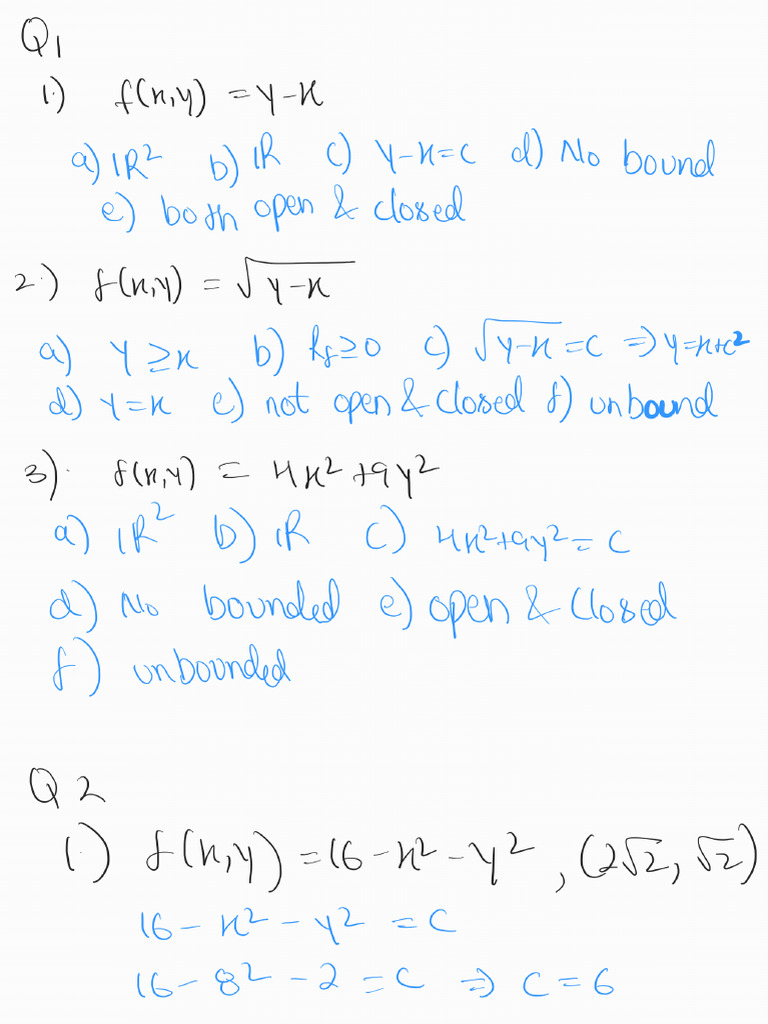 Q1
1.) f(x,y) = y-x
a) IR² b) IR c) y-x=c d) No bound
e) both open & closed
2.) f(x,y) = √(y-x)
a) y ≥ x b) Rf ≥ 0 c) √(y-x) = c ⇒ y=x+c²
d) y=x e) not open & closed f) unbound
3). f(x,y) = 4x²+9y²
a) IR² b) IR c) 4x²+9y² = c
d) No bounded e) open & closed
f) unbounded
Q2
1.) f(x,y) = 16-x²-y², (2√2, √2)
16 - x² - y² = c
16 - 8² - 2 = c ⇒ c = 6